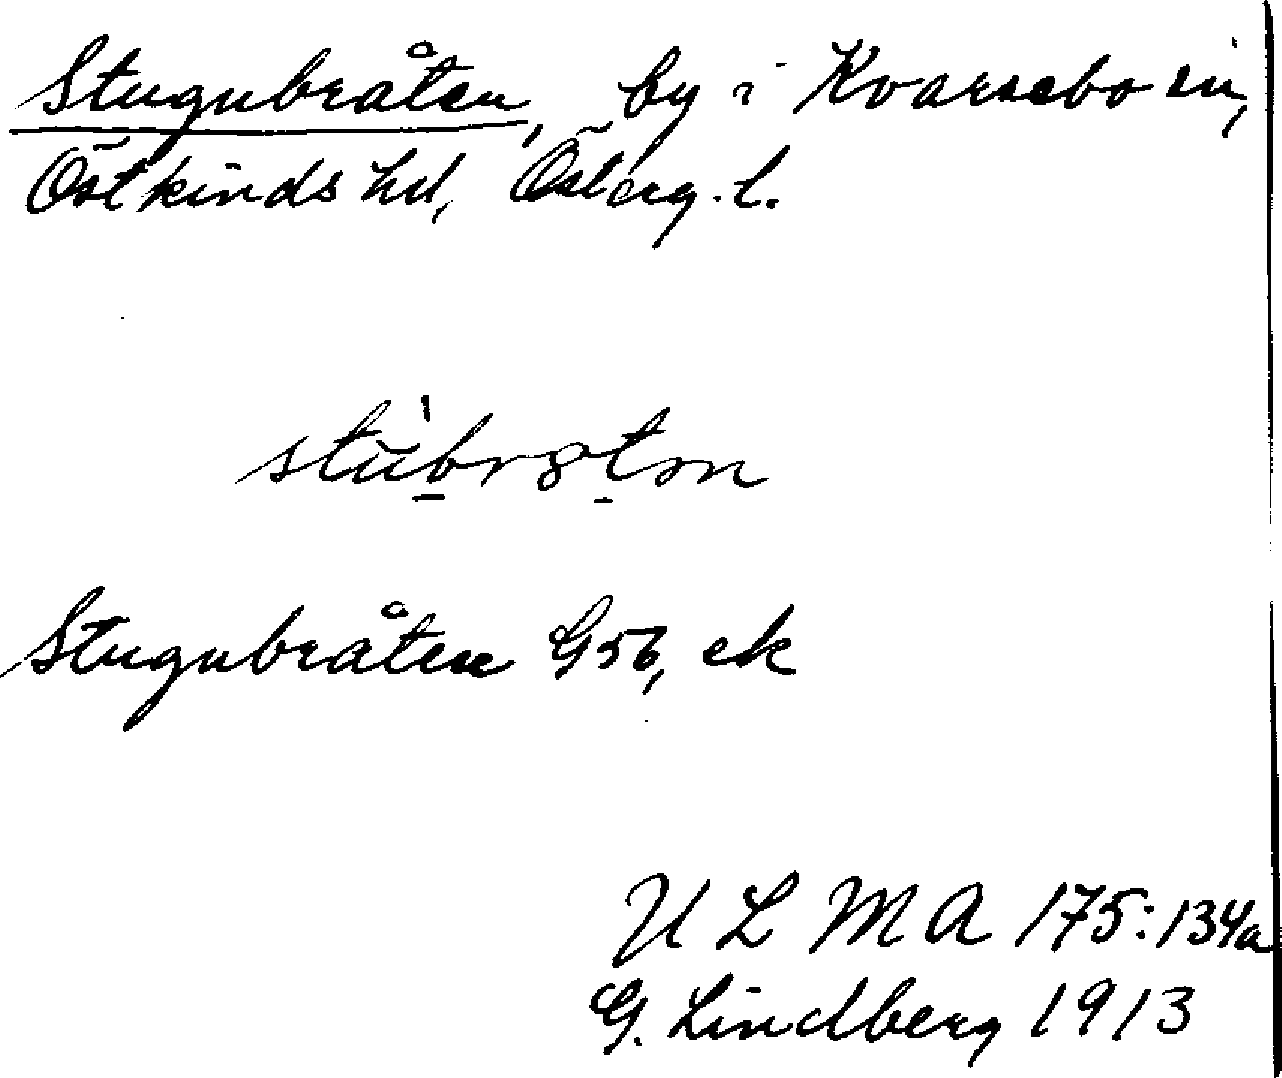 Stugubråten, by i Kvarsebo sn,
Östkinds hd, Österg. l.
Stugubråten G 56, ek
U L M A 175:134a
G. Lindberg 1913